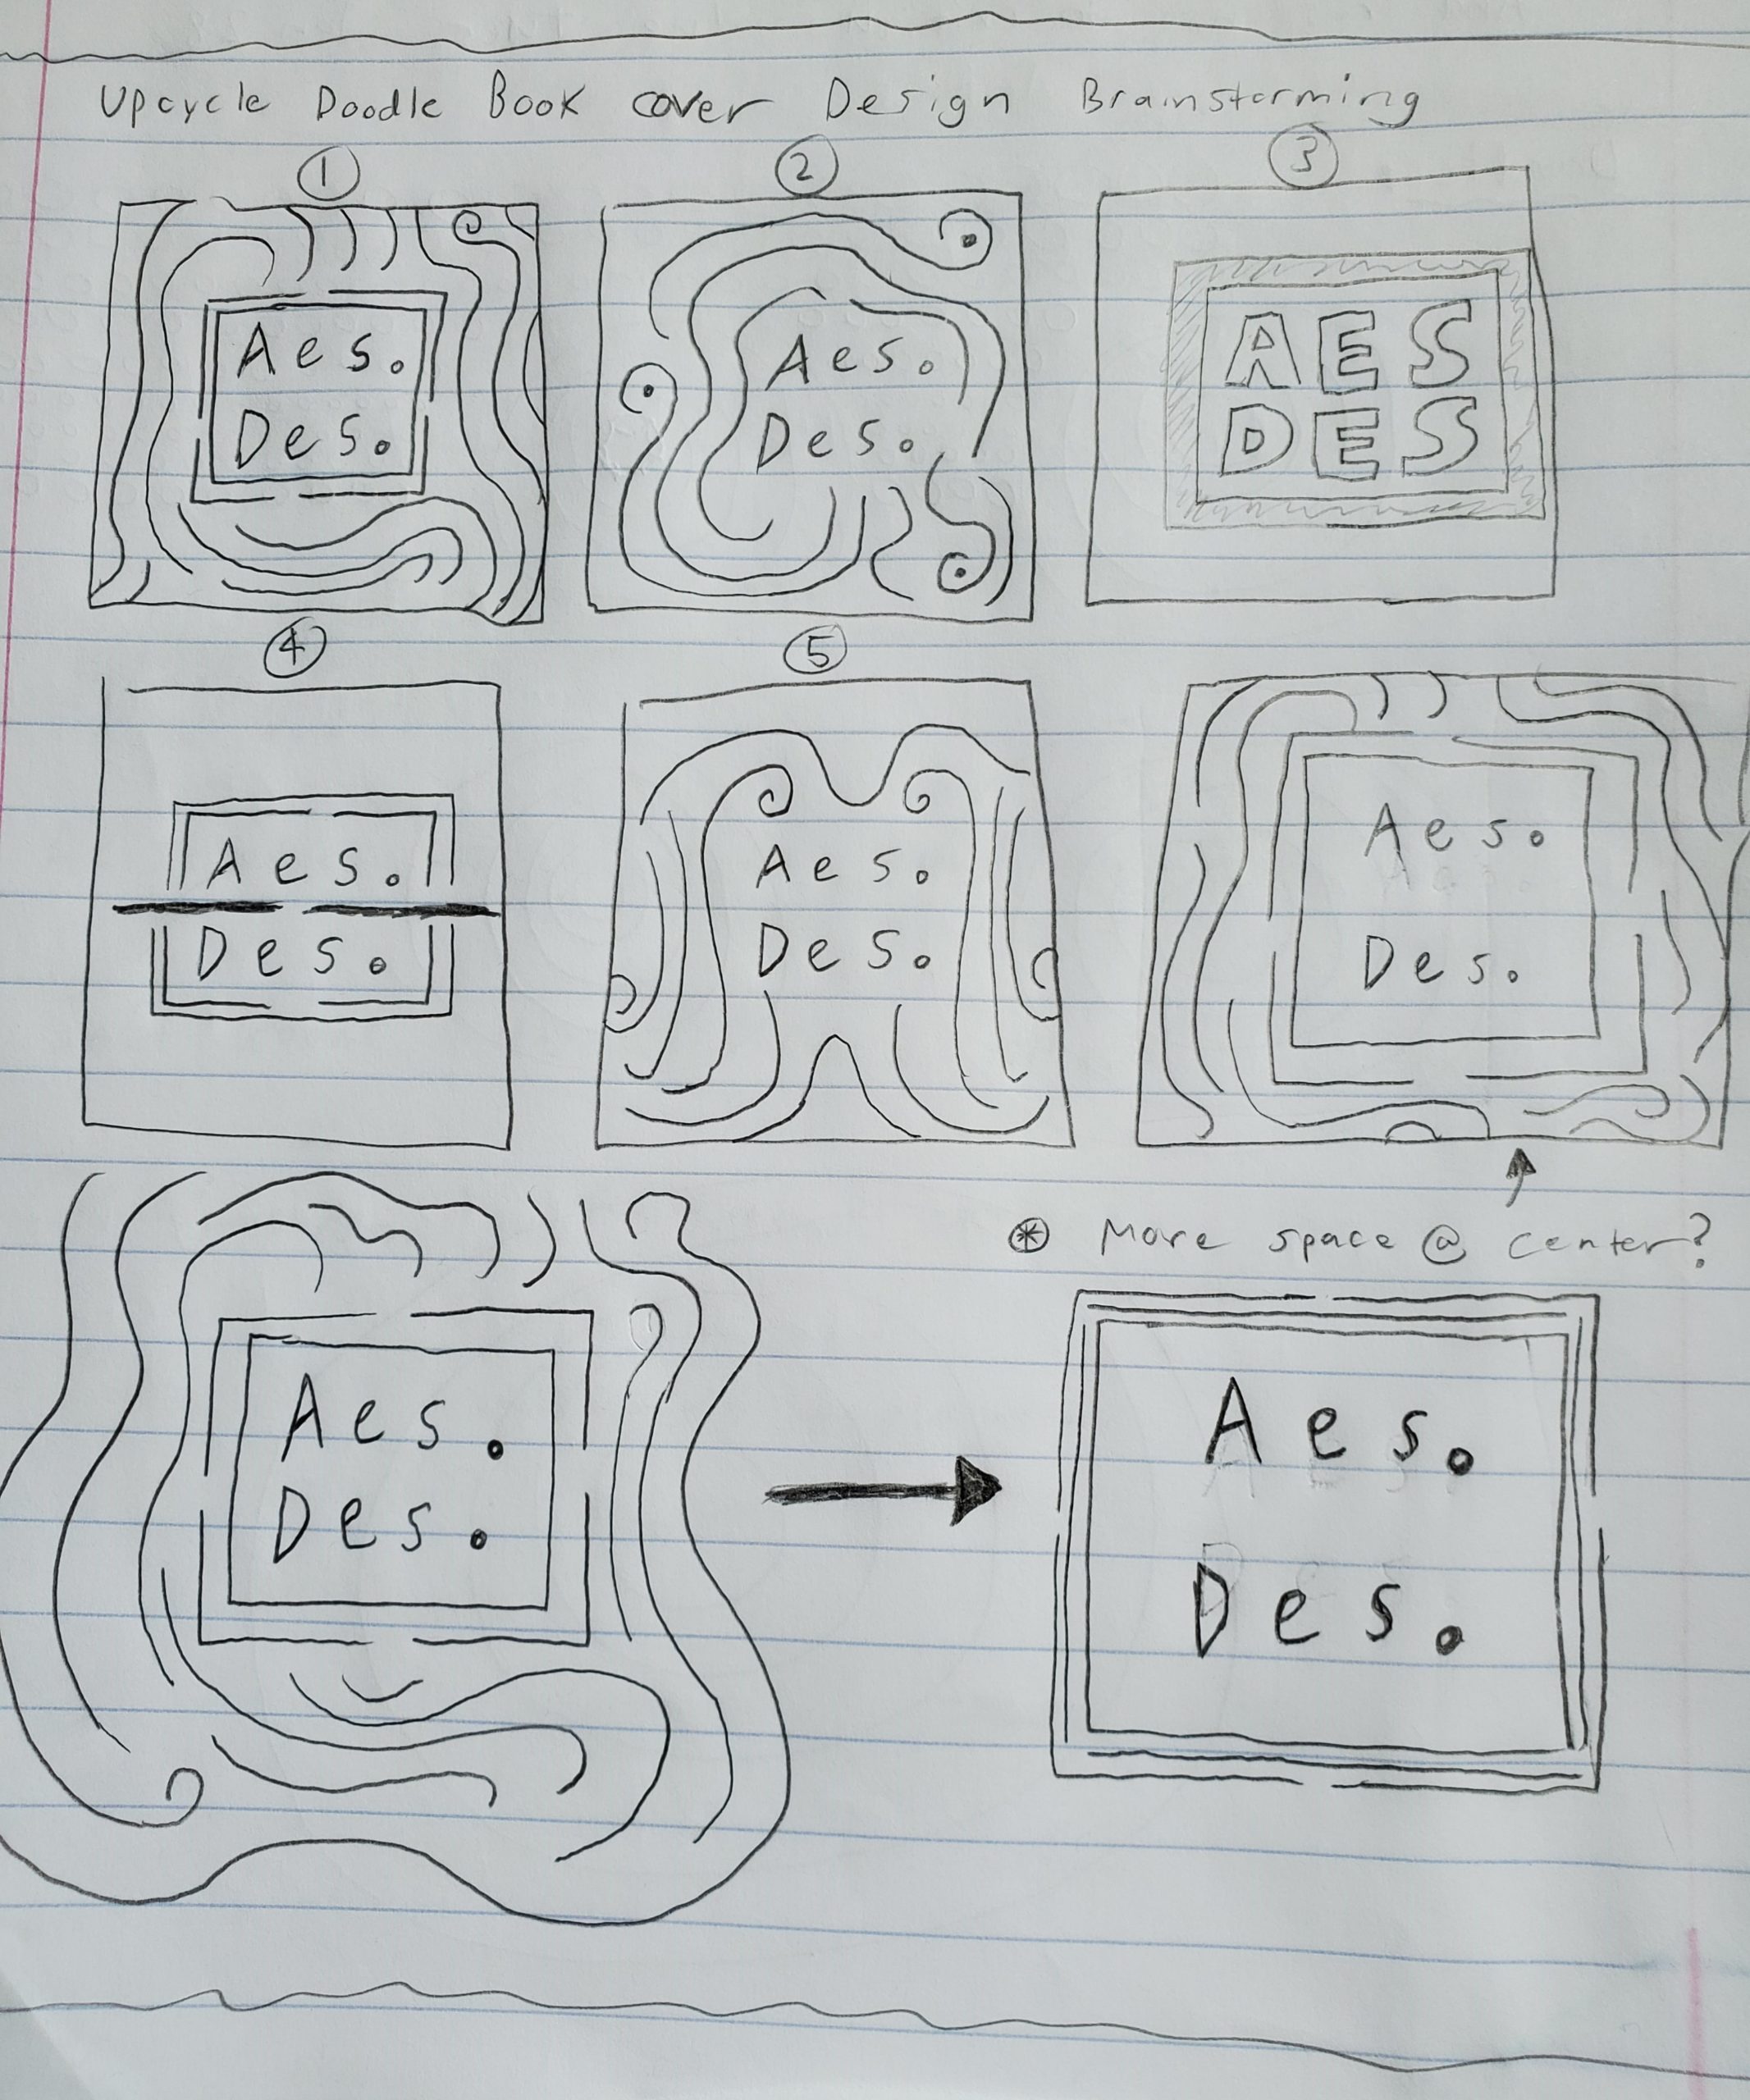 Upcycle Doodle Book cover Design Brainstorming
①
②
③
Aes.
Des.
Aes.
Des.
AES
DES
④
⑤
Aes.
Des.
Aes.
Des.
Aes.
Des.
⊛ More space @ center?
Aes.
Des.
Aes.
Des.